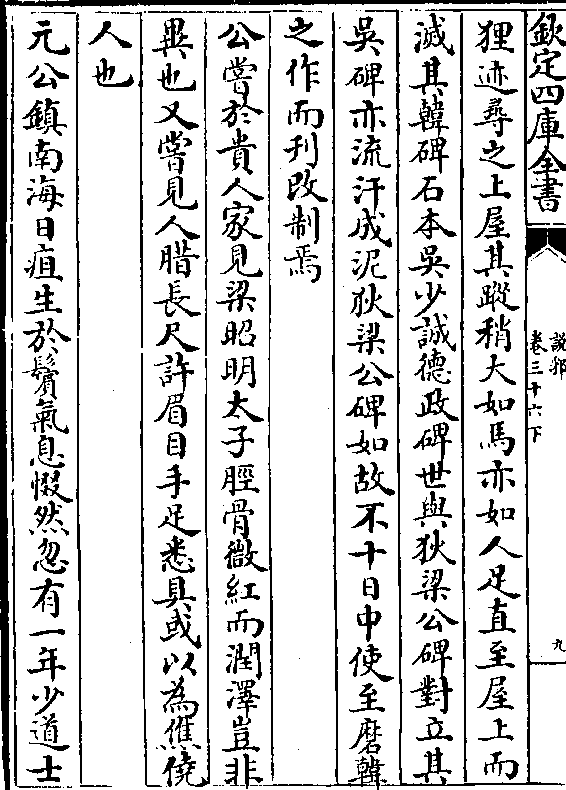 欽定四庫全書
說郛
卷三十六下
九
狸迹尋之上屋其蹤稍大如馬亦如人足直至屋上而
滅其韓碑石本吳少誠德政碑世與狄梁公碑對立其
吳碑亦流汗成泥狄梁公碑如故不十日中使至磨韓
之作而刊改制焉
公嘗於貴人家見梁昭明太子脛骨微紅而潤澤豈非
異也又嘗見人腊長尺許眉目手足悉具或以為僬僥
人也
元公鎮南海日疽生於鬢氣息惙然忽有一年少道士